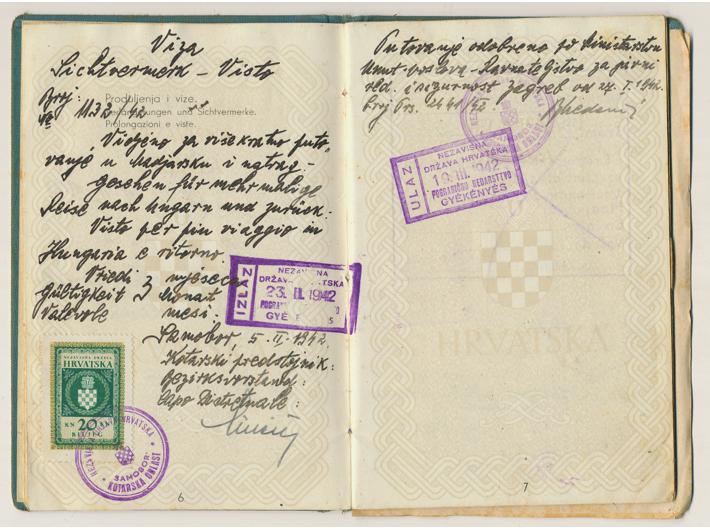 Viza
Sichtvermerk – Visto
Broj: 1132/42
Produljenja i vize.
Verlängerungen und Sichtvermerke.
Prolongazioni e viste.
Vidjeno za višekratno puto-
vanje u Madjarsku i natrag –
Gesehen für mehrmalige
Reise nach Ungarn und zurück:
Visto per piu viaggio in
Hungaria e ritorno.
Vriedi 3 mjeseca
Gültigkeit Monait
Valevole mesi.
Samobor, 5. II. 1942.
Kotarski predstojnik:
Bezirksvorstand:
Capo Distretuale:
IZLAZ
NEZAVISNA
DRŽAVA HRVATSKA
23. II. 1942
NEZAVISNA DRŽAVA
HRVATSKA
KN 20 KN
BILJEG
NEZAVISNA DRŽAVA HRVATSKA
SAMOBOR
KOTARSKA OBLAST
6
Putovanje odobreno od Ministarstva
unut. poslova – Ravnateljstvo za javni
red. i sigurnost Zagreb od I. 1942.
broj
ULAZ
NEZAVISNA
DRŽAVA HRVATSKA
19. III. 1942
POGRANIČNO REDARSTVO
GYÉKÉNYÉS
HRVATSKA
7